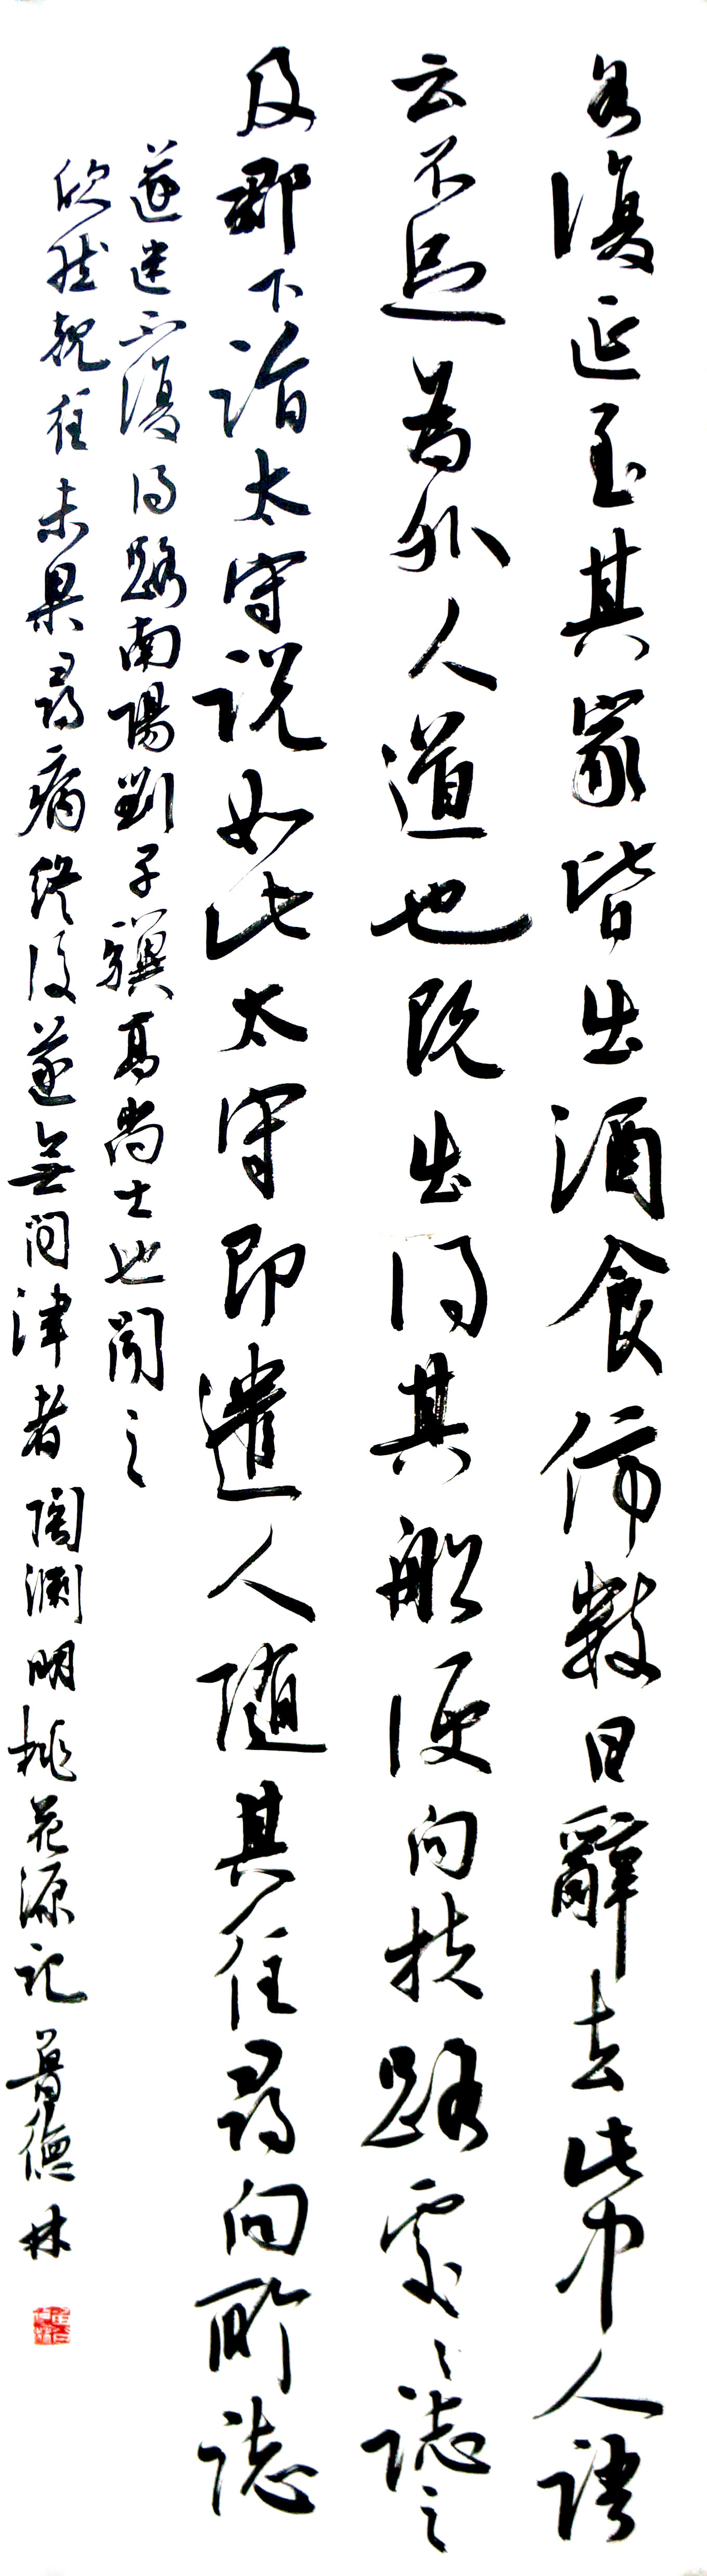 各復延至其家皆出酒食停數日辭去此中人語
云不足為外人道也既出得其船便向扶路處々誌之
及郡下詣太守說如此太守即遣人隨其往尋向所誌
遂迷不復得路南陽劉子驥高尚士也聞之
欣然規往未果尋病終後遂無問津者 陶淵明桃花源記 德林